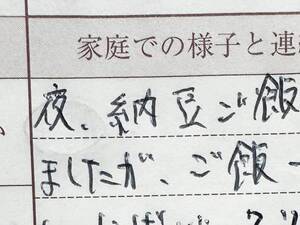 家庭での様子と連
夜、納豆ご飯
ましたが、ご飯一